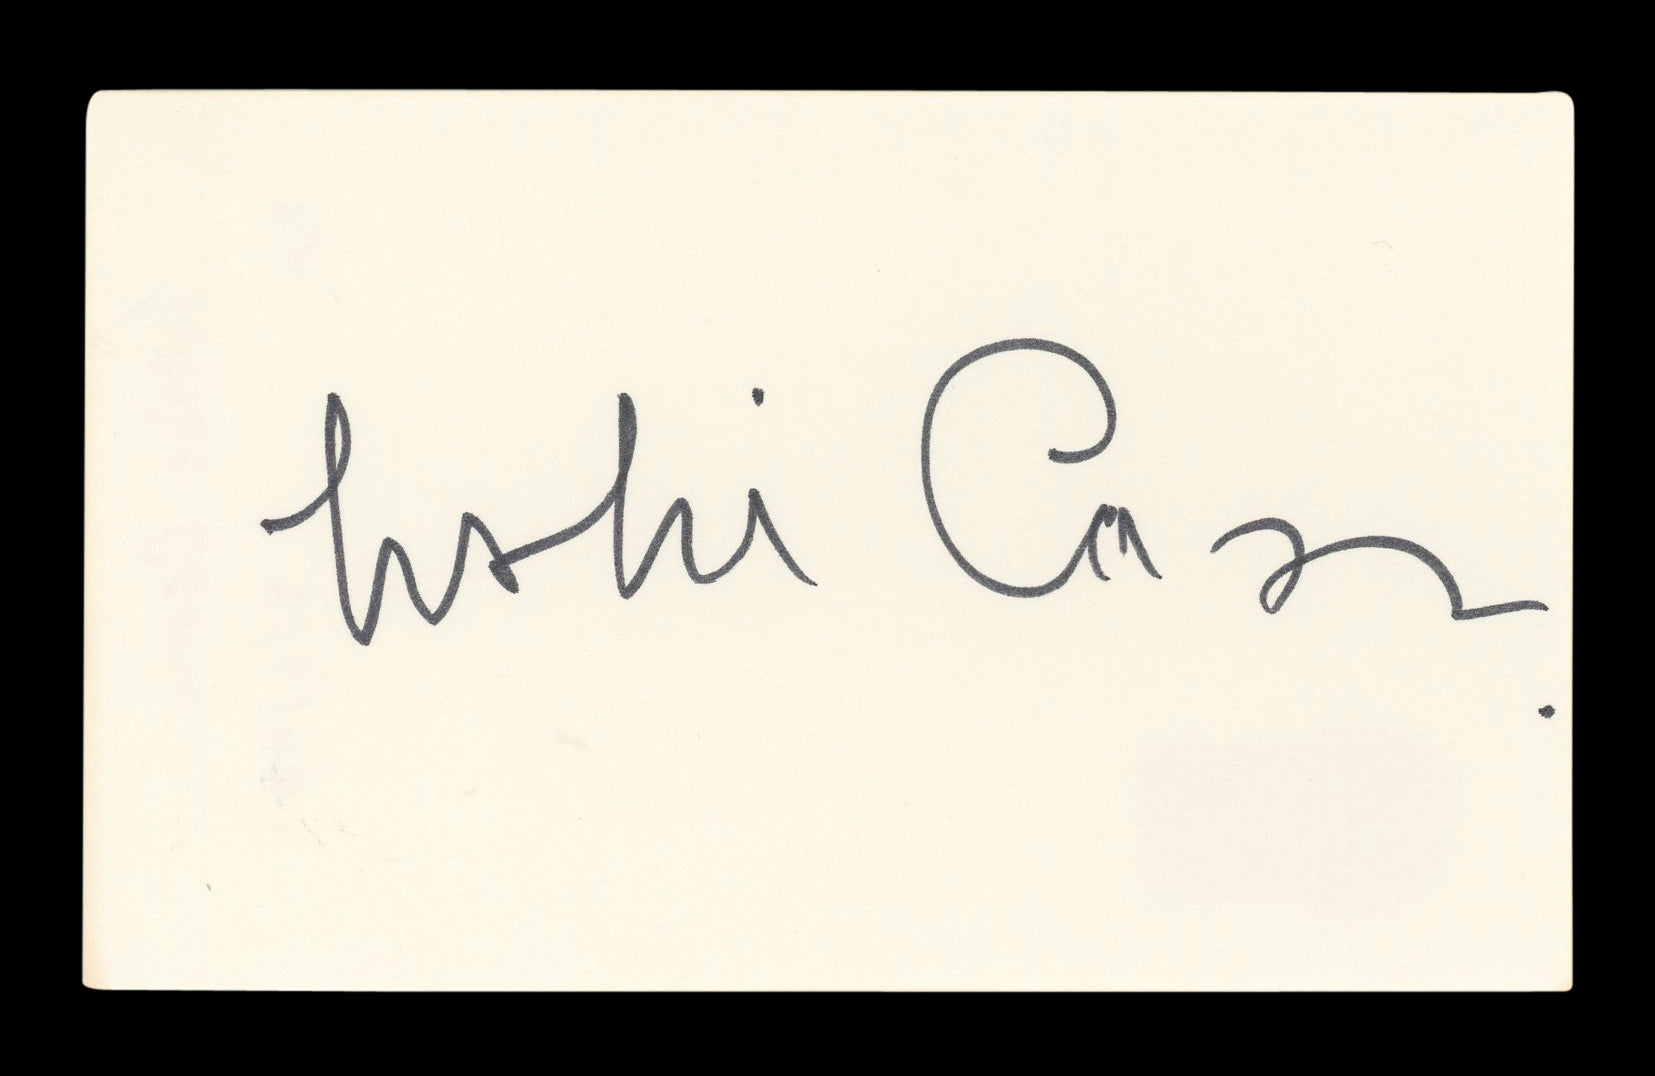 Leslie Caron